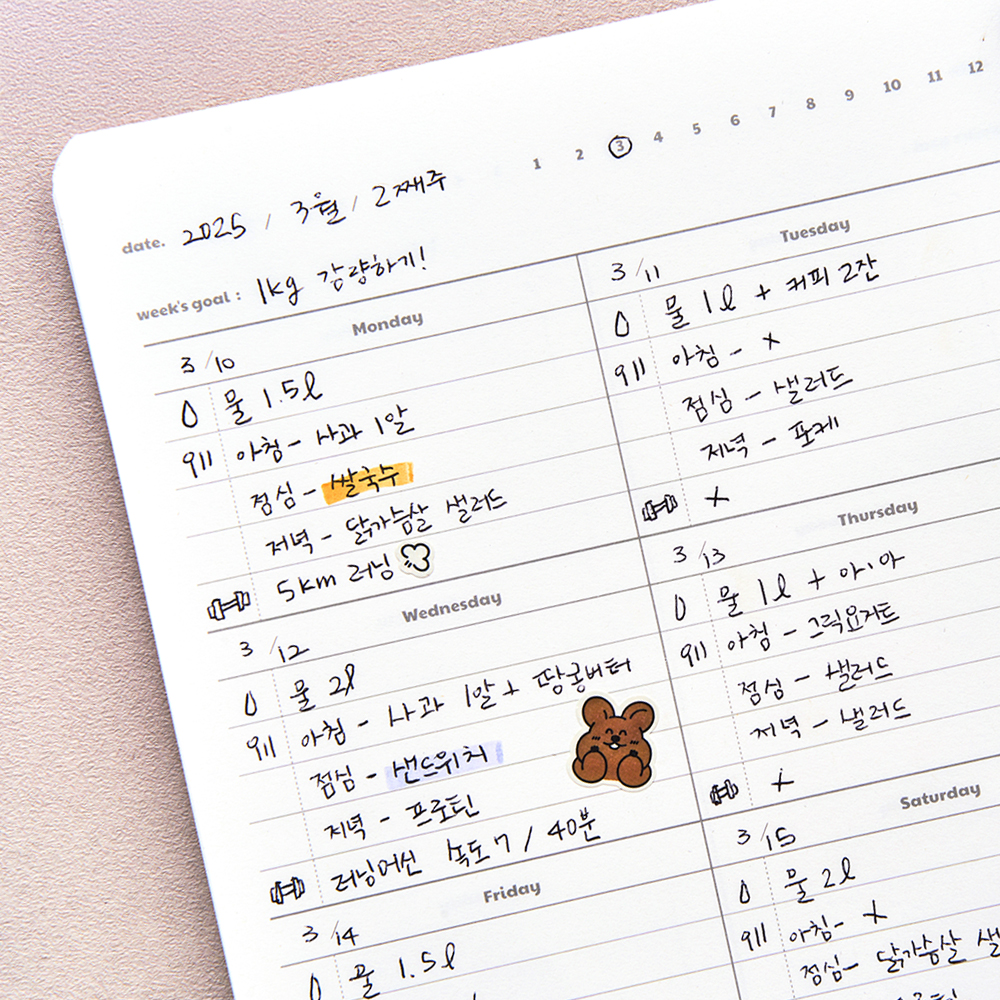 1 2 3 4 5 6 7 8 9 10 11 12
date. 2025 / 3월 / 2째주
week's goal : 1kg 감량하기!
Monday
3/10
물 1.5ℓ
아침 - 사과 1알
점심 - 쌀국수
저녁 - 닭가슴살 샐러드
5km 러닝
Tuesday
3/11
물 1ℓ + 커피 2잔
아침 - x
점심 - 샐러드
저녁 - 포케
x
Wednesday
3/12
물 2ℓ
아침 - 사과 1알 + 땅콩버터
점심 - 샌드위치
저녁 - 프로틴
러닝머신 속도 7 / 40분
Thursday
3/13
물 1ℓ + 아·아
아침 - 그릭요거트
점심 - 샐러드
저녁 - 샐러드
x
Friday
3/14
물 1.5ℓ
Saturday
3/15
물 2ℓ
아침 - x
점심 - 닭가슴살 샐